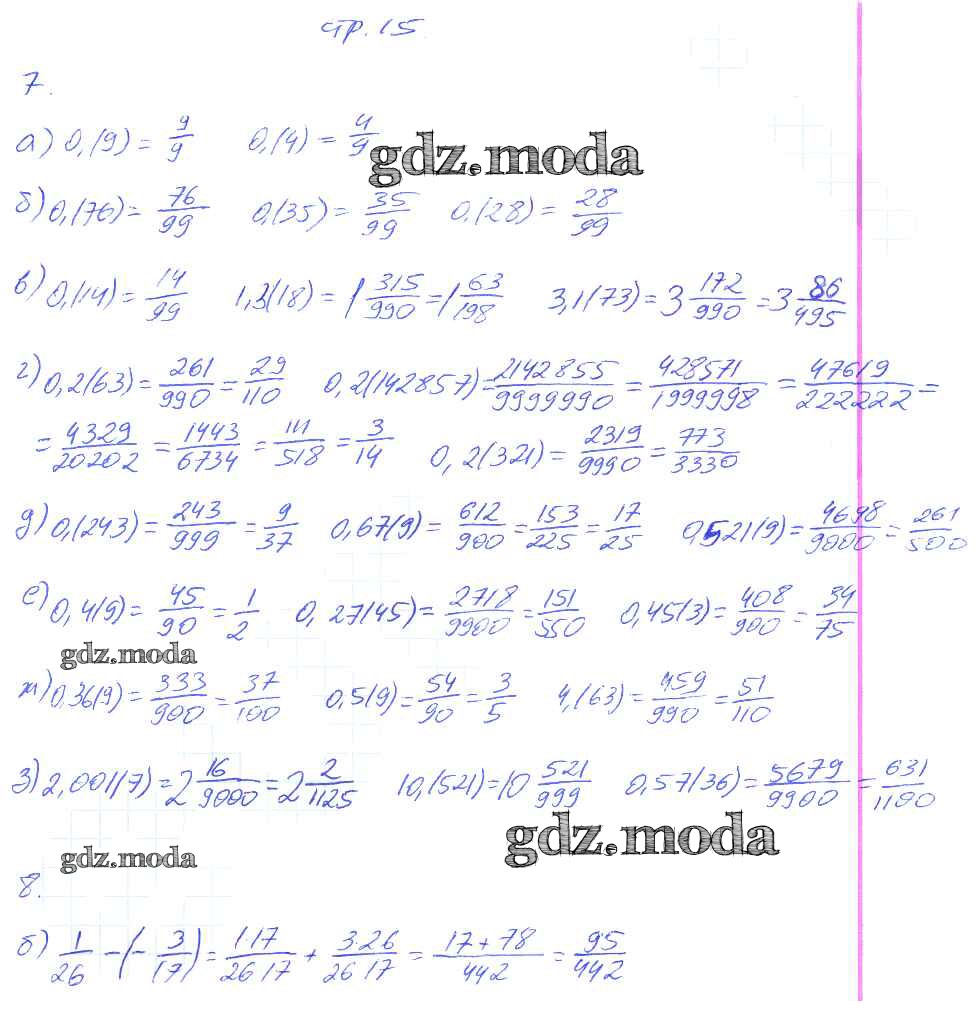 стр. 15.
7.
а) 0,(9) = 9/9   0,(4) = 4/9
gdz.moda
б) 0,(76) = 76/99   0,(35) = 35/99   0,(28) = 28/99
в) 0,(14) = 14/99   1,3(18) = 1 315/990 = 1 63/198   3,1(73) = 3 172/990 = 3 86/495
г) 0,2(63) = 261/990 = 29/110   0,2(142857) = 2142855/9999990 = 428571/1999998 = 47619/222222 =
= 4329/20202 = 1443/6734 = 111/518 = 3/14   0,2(321) = 2319/9990 = 773/3330
д) 0,(243) = 243/999 = 9/37   0,67(9) = 612/900 = 153/225 = 17/25   0,521(9) = 4698/9000 = 261/500
е) 0,4(9) = 45/90 = 1/2   0,27(45) = 2718/9900 = 151/550   0,45(3) = 408/900 = 34/75
gdz.moda
ж) 0,36(9) = 333/900 = 37/100   0,5(9) = 54/90 = 3/5   4,(63) = 459/990 = 51/110
з) 2,001(7) = 2 16/9000 = 2 2/1125   10,(521) = 10 521/999   0,57(36) = 5679/9900 = 631/1100
gdz.moda
gdz.moda
8.
б) 1/26 - (- 3/17) = 1·17/26·17 + 3·26/26·17 = 17+78/442 = 95/442